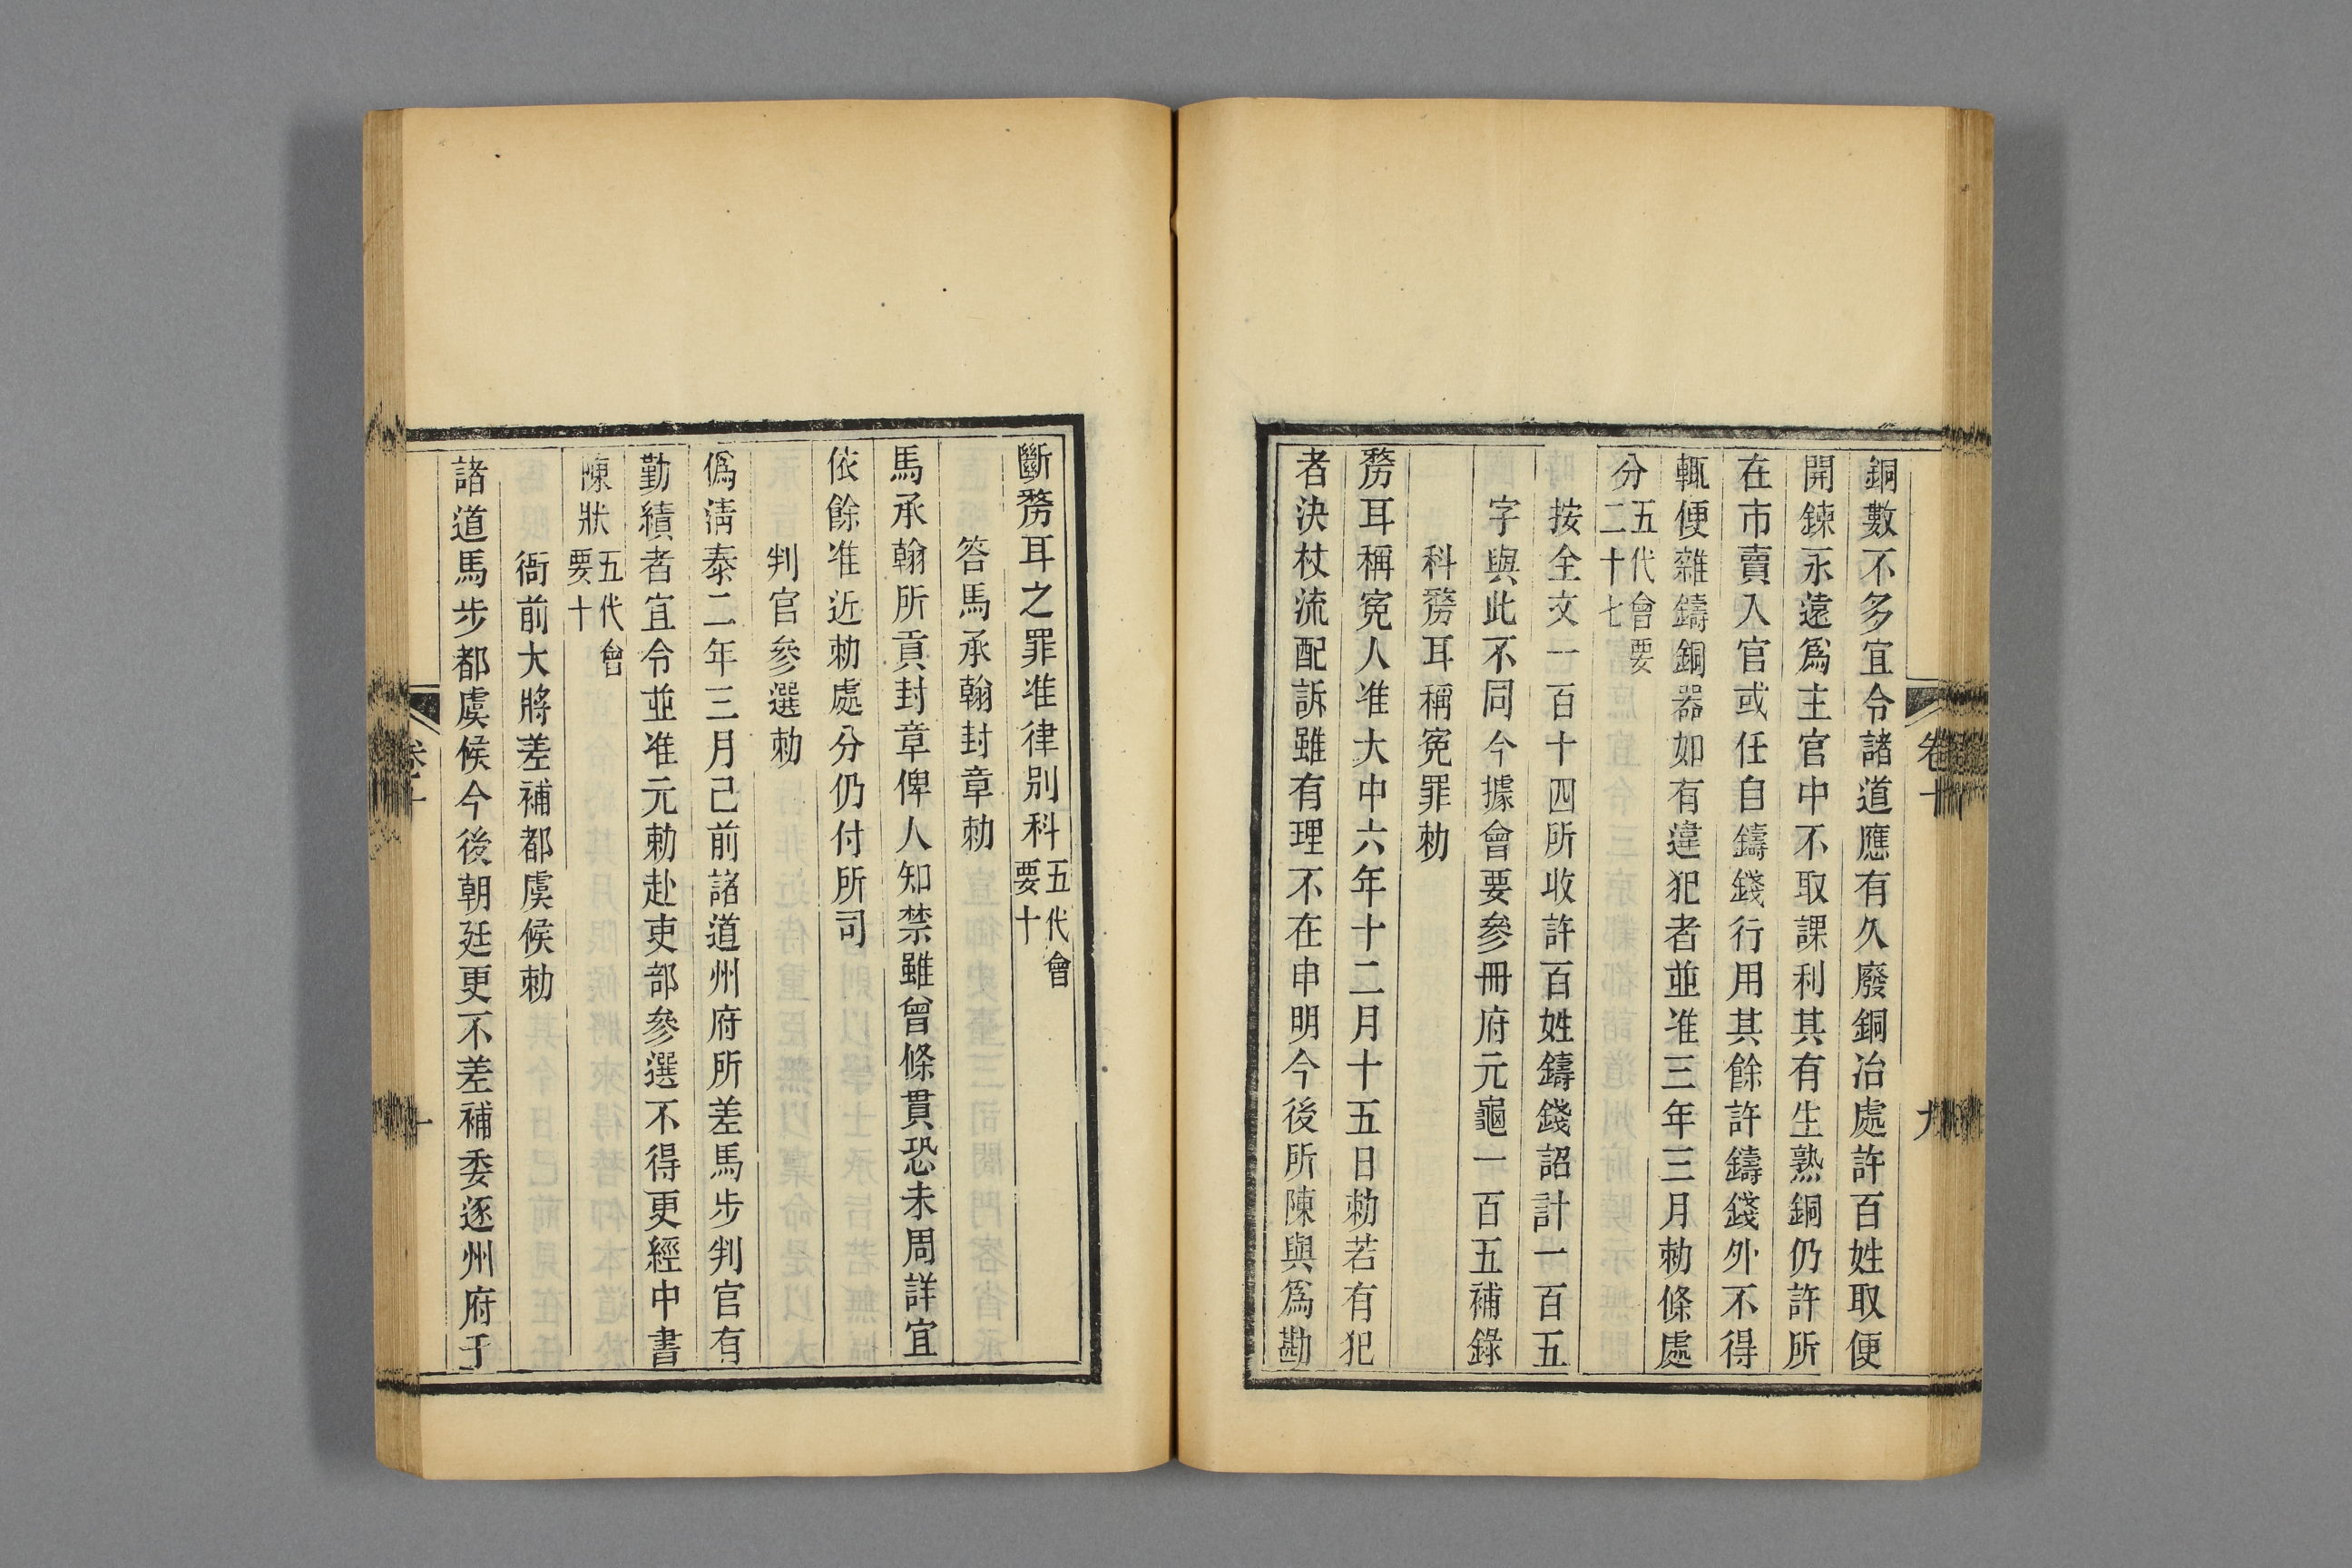 銅數不多宜令諸道應有久廢銅冶處許百姓取便
開鍊永遠爲主官中不取課利其有生熟銅仍許所
在市賣入官或任自鑄錢行用其餘許鑄錢外不得
輒便雜鑄銅器如有違犯者並准三年三月勅條處
分五代會要二十七
按全文一百十四所收許百姓鑄錢詔計一百五
字與此不同今據會要參冊府元龜一百五補錄
科剺耳稱冤罪勅
剺耳稱冤人准大中六年十二月十五日勅若有犯
者決杖流配訴雖有理不在申明今後所陳與爲勘
卷十
九
斷剺耳之罪准律別科五代會要十
答馬承翰封章勅
馬承翰所貢封章俾人知禁雖曾條貫恐未周詳宜
依餘准近勅處分仍付所司
判官參選勅
僞淸泰二年三月己前諸道州府所差馬步判官有
勤績者宜令並准元勅赴吏部參選不得更經中書
陳狀五代會要十
衙前大將差補都虞候勅
諸道馬步都虞候今後朝廷更不差補委逐州府于